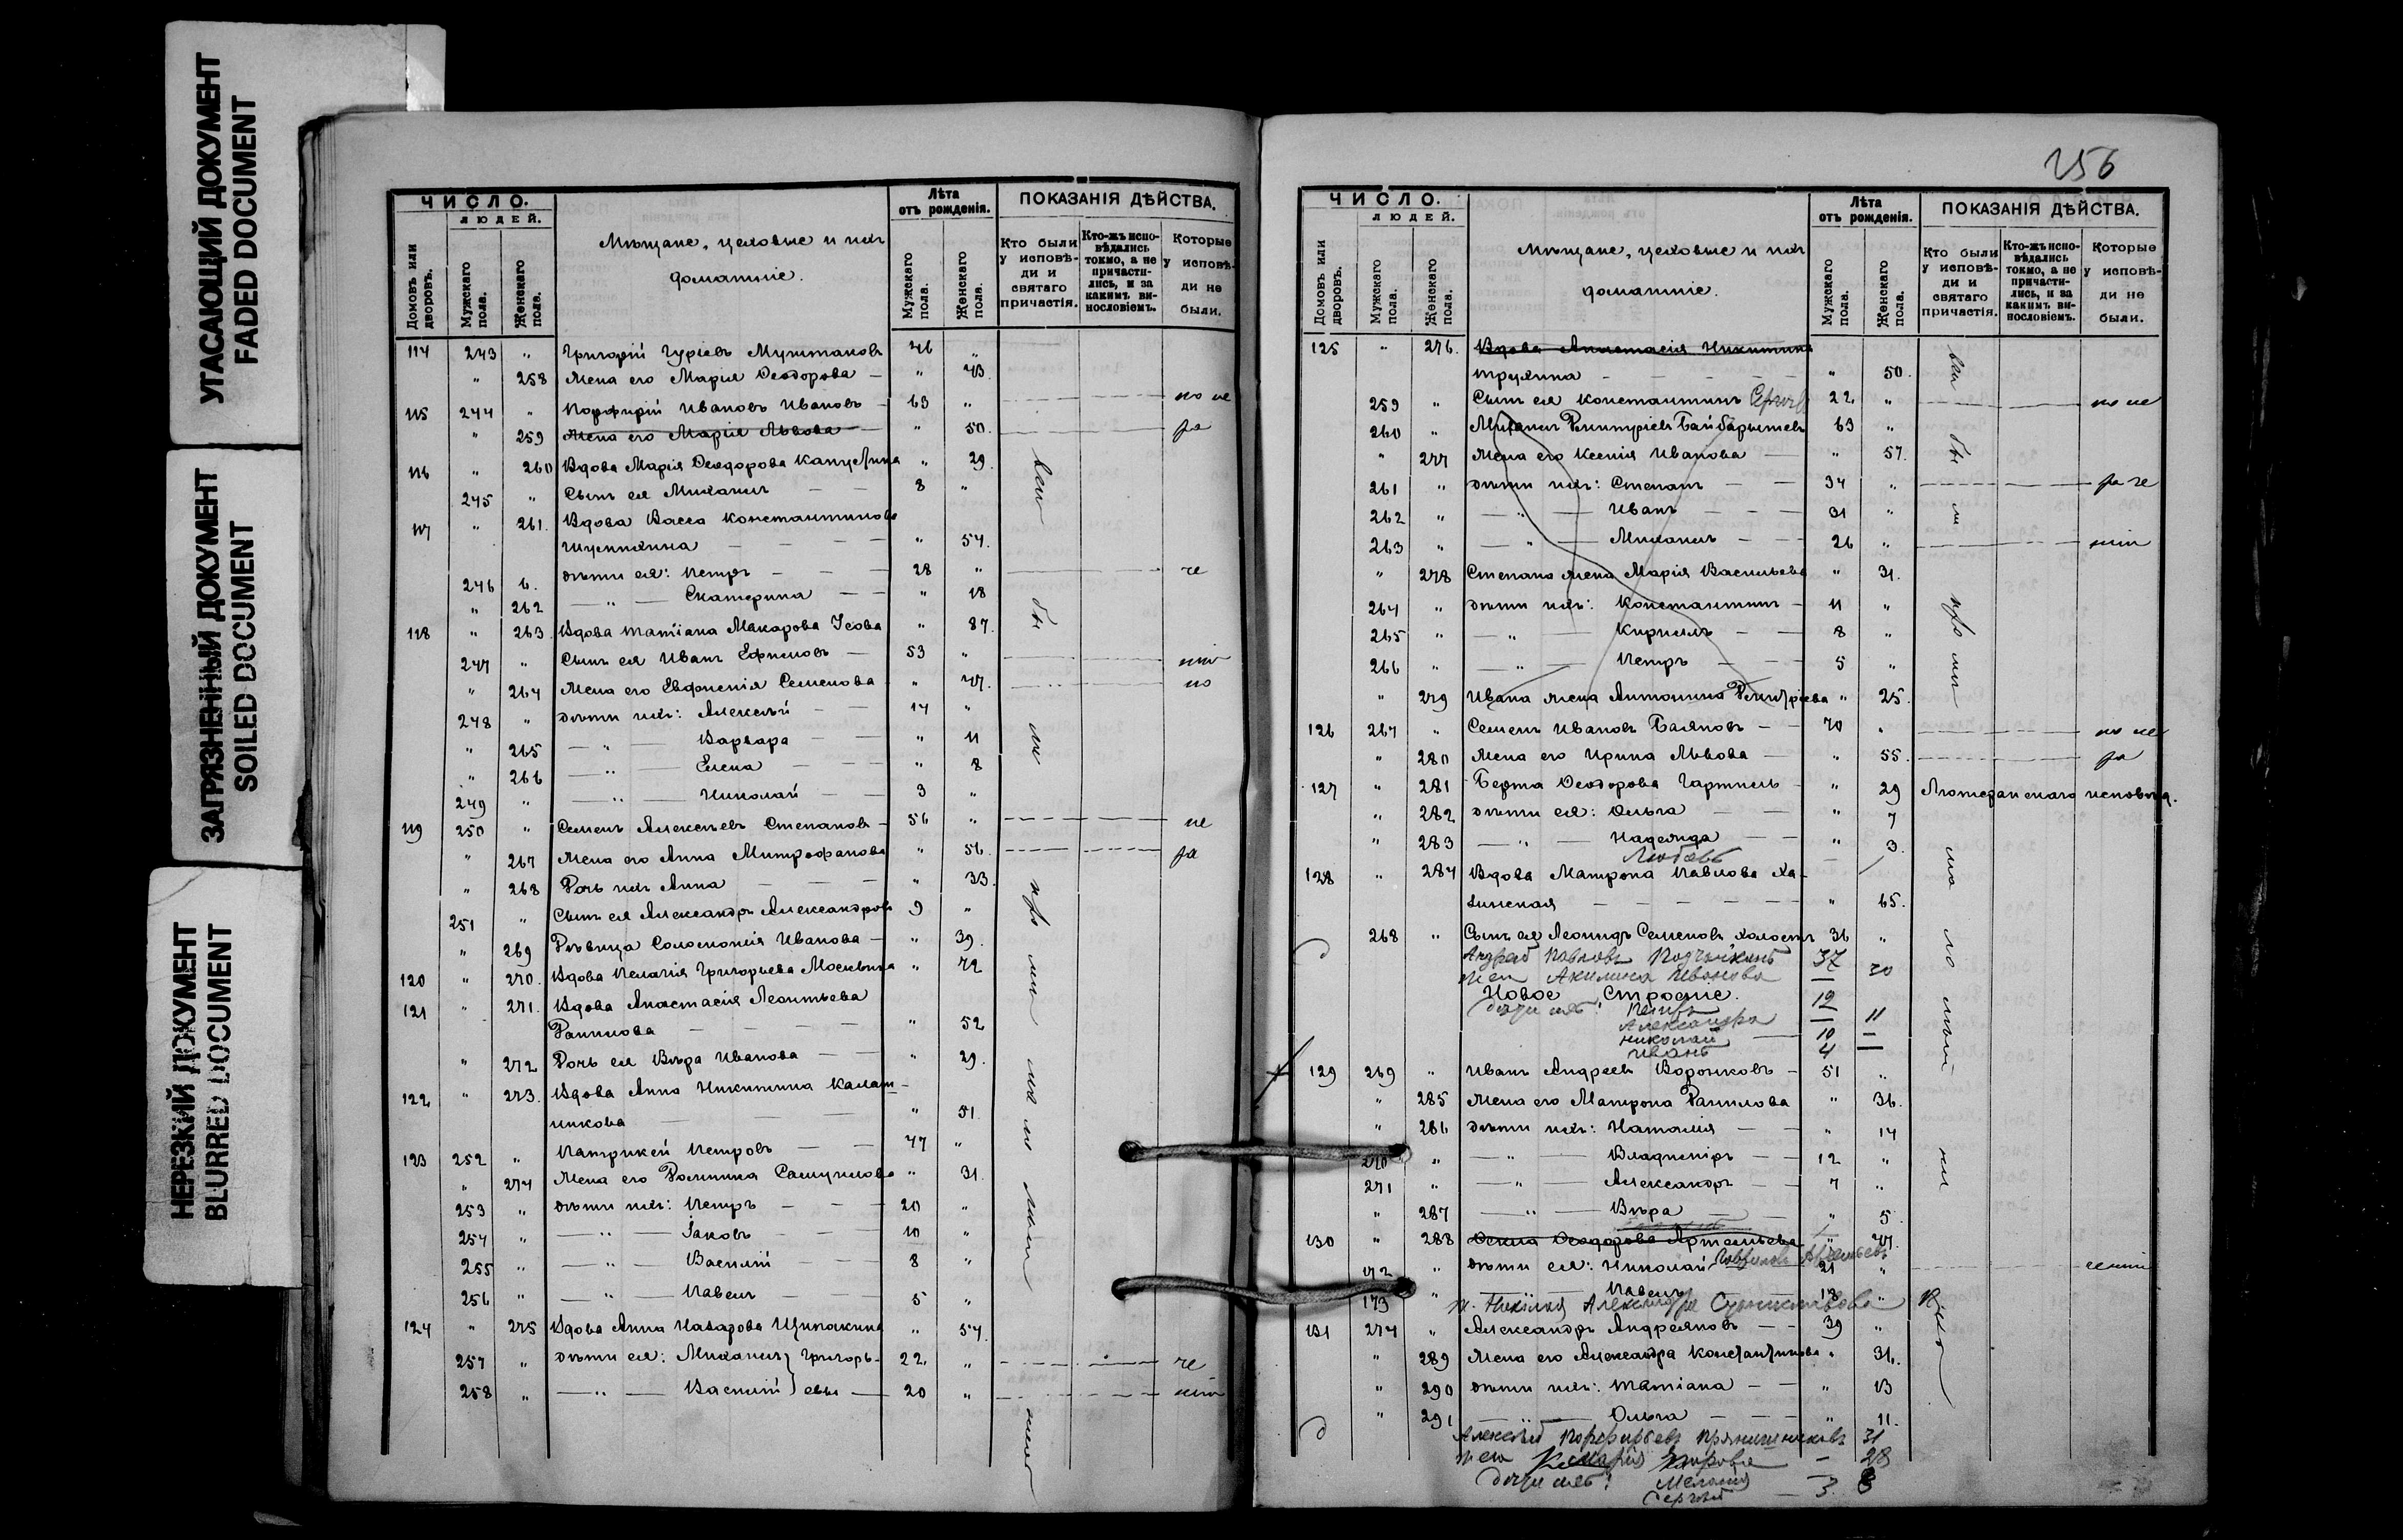 УГАСАЮЩИЙ ДОКУМЕНТ
FADED DOCUMENT
ЗАГРЯЗНЕННЫЙ ДОКУМЕНТ
SOILED DOCUMENT
НЕРЕЗКИЙ ДОКУМЕНТ
BLURRED DOCUMENT
ЧИСЛО.
ЛЮДЕЙ.
Домовъ или дворовъ.
Мужскаго пола.
Женскаго пола.
Мѣщане, цеховые и ихъ
домашніе.
Лѣта
отъ рожденія.
Мужскаго пола.
Женскаго пола.
ПОКАЗАНІЯ ДѢЙСТВА.
Кто были у исповѣди и святаго причастія.
Кто-жъ исповѣдались токмо, а не причастились, и за какимъ винословіемъ.
Которые у исповѣди не были.
114 243 " Григорій Гуріевъ Мунтановъ 46 "
" 258 Жена его Марія Ѳеодорова — " 43
115 244 " Порфирій Ивановъ Ивановъ 63 " по не
" 259 Жена его Марія Львова " 50. ра
116 " 260 Вдова Марія Ѳеодорова Капустина " 29.
245 " Сынъ ея Михаилъ — — 8 "
117 " 261. Вдова Васса Константинова
" 54.
246 Дѣти ея: Петръ — — 28 " че
" 262 — " — Екатерина — — " 18
118 " 263. Вдова Татіана Макарова Усова " 87.
247 " Сынъ ея Иванъ Ефимовъ — 53 "
" 264 Жена его Евфимія Семенова " 47. по
248 " Дѣти ихъ: Алексѣй — — 14 "
" 265 — " — Варвара — — " 11
" 266 — " — Елена — — " 8
249 " — " — Николай — — 3 "
119 250 " Семенъ Алексѣевъ Степановъ — 56 " не
" 267 Жена его Анна Митрофанова " 56. ра
" 268 Дочь ихъ Анна — — " 33.
251 " Сынъ ея Александръ Александровъ 9 "
" 269 Дѣвица Соломонія Иванова — " 39.
120 " 270. Вдова Пелагія Григорьева Москвина " 72
121 " 271. Вдова Анастасія Леонтьева
Данилова — — — " 52
" 272 Дочь ея Вѣра Иванова — — " 29.
122 " 273. Вдова Анна Никитина Калаш-
никова — — — " 51.
123 252 " Патрикей Петровъ — — 47 "
" 274 Жена его Домника Самуилова " 31.
253 " Дѣти ихъ: Петръ — — 20 "
254 " — " — Іаковъ — — 10 "
255 " — " — Василій — — 8 "
256 " — " — Павелъ — — 5 "
124 " 275 Вдова Анна Назарова Щипакина " 54.
257 " Дѣти ея: Михаилъ } Григорь- 22. " че
258 " — " — Василій } евы — 20 "
256
ЧИСЛО.
ЛЮДЕЙ.
Домовъ или дворовъ.
Мужскаго пола.
Женскаго пола.
Мѣщане, цеховые и ихъ
домашніе.
Лѣта
отъ рожденія.
Мужскаго пола.
Женскаго пола.
ПОКАЗАНІЯ ДѢЙСТВА.
Кто были у исповѣди и святаго причастія.
Кто-жъ исповѣдались токмо, а не причастились, и за какимъ винословіемъ.
Которые у исповѣди не были.
125 " 276. Вдова Анастасія Никитина
" 50.
259 " Сынъ ея Константинъ 22 " по не
260 " Михаилъ Димитріевъ Байбарышевъ 63 "
" 277 Жена его Ксенія Иванова — " 57.
261 " Дѣти ихъ: Степанъ — — 34 "
262 " — " — Иванъ — — 31 "
263 " — " — Михаилъ — — 26 "
" 278 Степана жена Марія Васильева " 31.
264 " Дѣти ихъ: Константинъ — 11 "
265 " — " — Кириллъ — — 8 "
266 " — " — Петръ — — 5 "
" 279 Ивана жена Антонина Димитріева " 25.
126 267 " Семенъ Ивановъ Баляновъ — — 70 " по не
" 280 Жена его Ирина Львова — " 55. ра
127 " 281 Берта Ѳеодорова Гартиль — " 29 Лютеранскаго исповѣд.
" 282 Дѣти ея: Ольга — — " 7
" 283 — " — Надежда — — " 3.
Любовь
128 " 284 Вдова Матрона Павлова Ха-
" 65.
268 " Сынъ ея Леонидъ Семеновъ холостъ 36 "
Андрей Павловъ 37
жена Акилина Иванова 30
Новое Строеніе.
Дѣти ихъ: 12
Александра — 11
Николай — 10 —
Иванъ 4 —
129 269 " Иванъ Андреевъ Воронковъ — 51 "
" 285 Жена его Матрона Данилова " 36.
" 286 Дѣти ихъ: Наталія — — " 14
270 " — " — Владиміръ — — 12 "
271 " — " — Александръ — — 7 "
" 287 — " — Вѣра — — " 5.
130 " 288 Ѳеодорова Артемьева " 47.
" Дѣти ея: Николай 21 "
173 " Павелъ 18 "
Александра
131 274 " Александръ Андреяновъ — — 39 "
" 289 Жена его Александра Константинова " 31.
" 290 Дѣти ихъ: Татіана — — " 13
" 291 — " — Ольга — — " 11.
Алексѣй Порфирьевъ Прянишниковъ 31
жена Марія — 28
Дѣти ихъ: Меланія
Сергѣй — 3